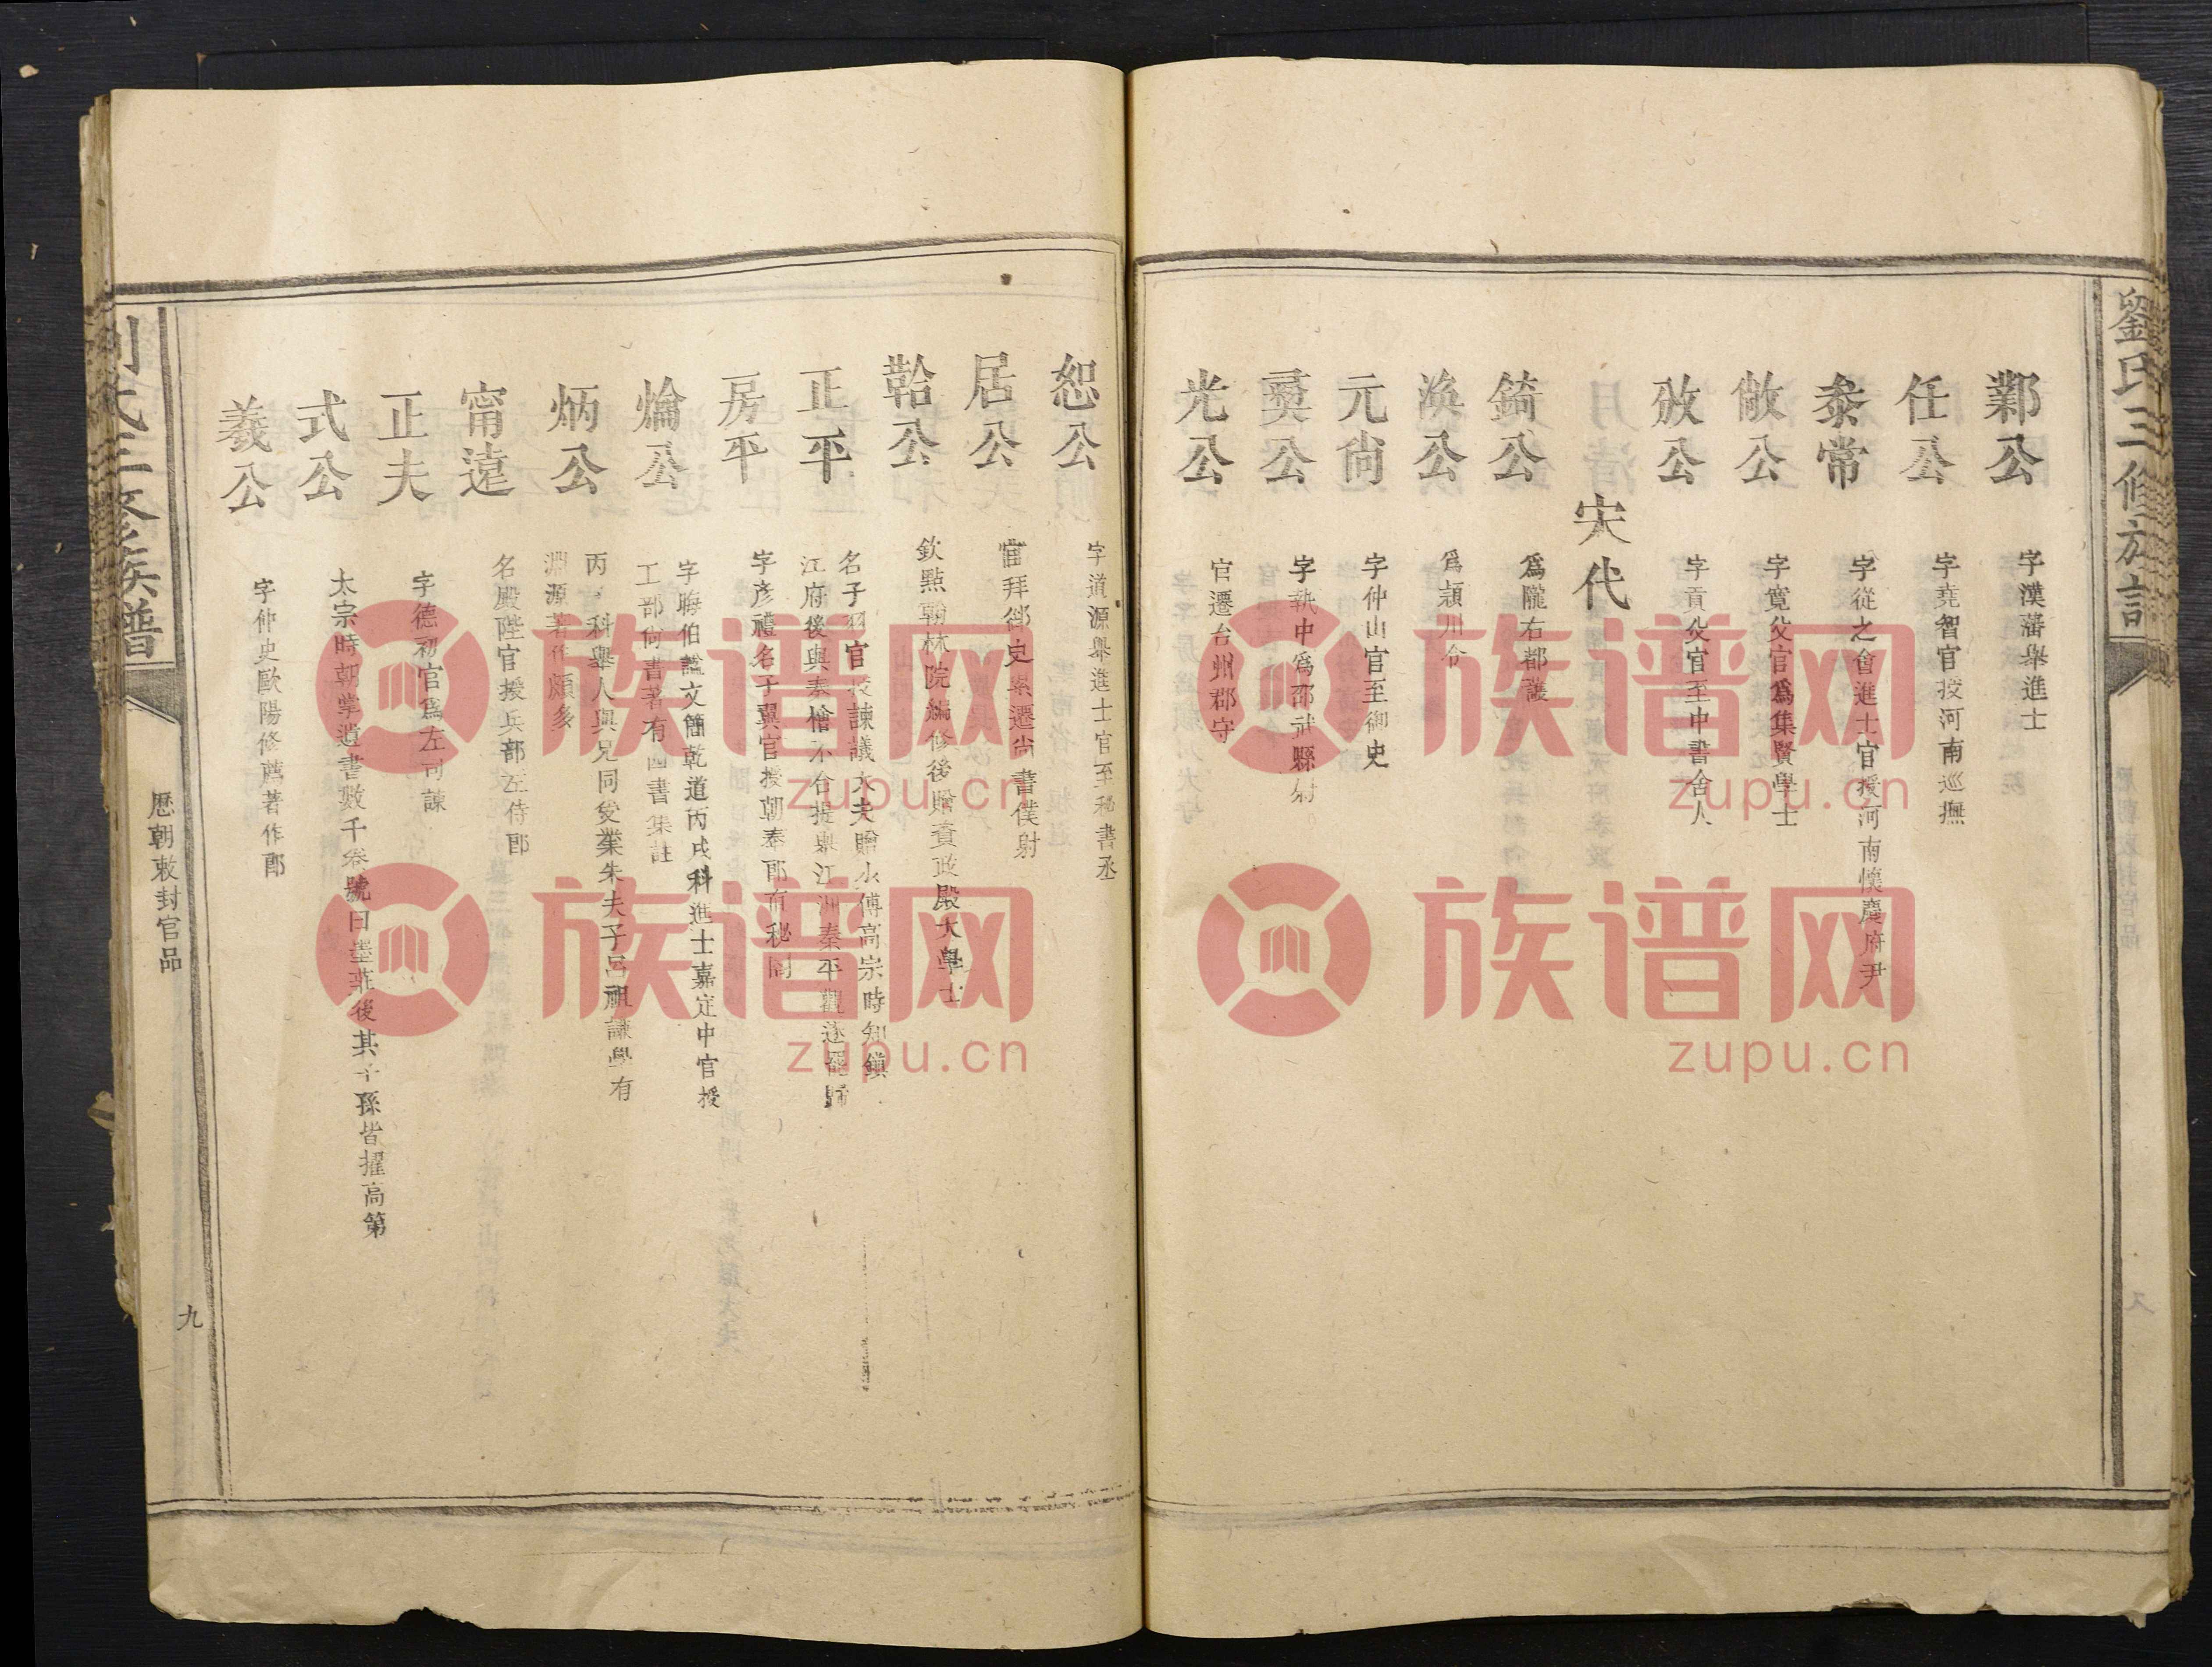 劉氏三修族譜
鄴公 字漢藩舉進士
任公 字堯智官授河南巡撫
泰常 字從之會進士官授河南懷慶府尹
敞公 字寬父官爲集賢學士
攽公 字貢父官至中書舍人
宋代
錡公 爲隴右都護
渙公 爲潁川令
元尙 字仲山官至御史
奭公 字執中爲邵武縣尉
光公 官遷台州郡守
恕公 字道源舉進士官至秘書丞
居公 官拜御史累遷尚書僕射
韐公 欽點翰林院編修後贈資政殿大學士
正平 名子羽官授諫議大夫贈少傅高宗時知鎮
江府後與秦檜不合提舉江州泰平觀遂
房平 字彥禮名子翼官授朝奉郎直秘閣
爚公 字晦伯謚文簡乾道丙戌科進士嘉定中官授
工部尙書著有四書集註
炳公 丙 科舉人與兄同受業朱夫子呂祖謙學有
淵源著作頗多
甯遠 名殿陛官授兵部左侍郎
正夫 字德初官爲左司諫
式公 太宗時朝掌遺書數千卷號曰墨莊後其子孫皆擢高第
羲公 字仲史歐陽修薦著作郎
劉氏三修族譜
歷朝敕封官品
九
族谱网
zupu.cn
族谱网
zupu.cn
族谱网
zupu.cn
族谱网
zupu.cn